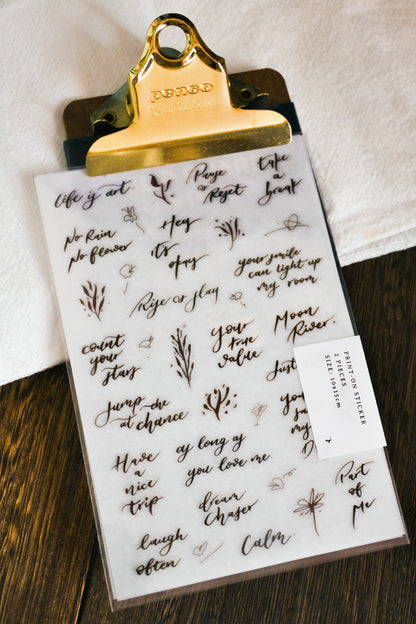 penco
life is art
Pause
or
Reset
take
a
break
No Rain
No flower
Hey
it's
okay
your smile
can light up
my room
Rise or slay
count
your
stars
Your
true
value
Moon
River.
Jump-the
at chance
Just
PRINT-ON STICKER
2 PIECES
SIZE: 10x15cm
Have
a
nice
trip
as long as
you love me
You
my
dream
Chaser
Part
of
Me
laugh
often
Calm.